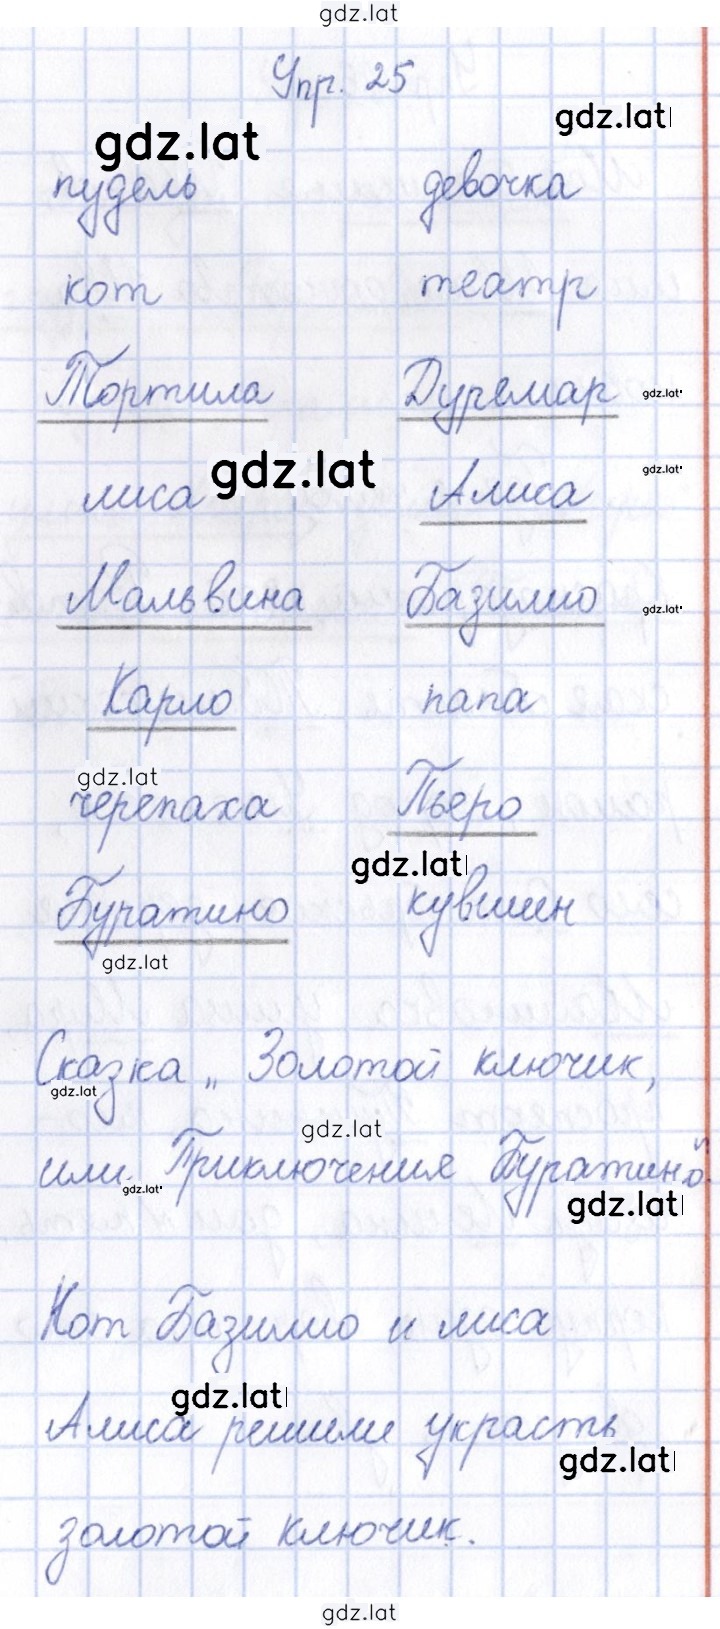 gdz.lat
Упр. 25
gdz.lat gdz.lat
пудель девочка
кот театр
Тортила Дуремар gdz.lat
лиса gdz.lat Алиса gdz.lat
Мальвина Базилио gdz.lat
Карло папа
gdz.lat
черепаха Пьеро
gdz.lat
Буратино кувшин
gdz.lat
Сказка „Золотой ключик,
gdz.lat
gdz.lat
или Приключения Буратино“.
gdz.lat
gdz.lat
Кот Базилио и лиса
gdz.lat
Алиса решили украсть
gdz.lat
золотой ключик.
gdz.lat